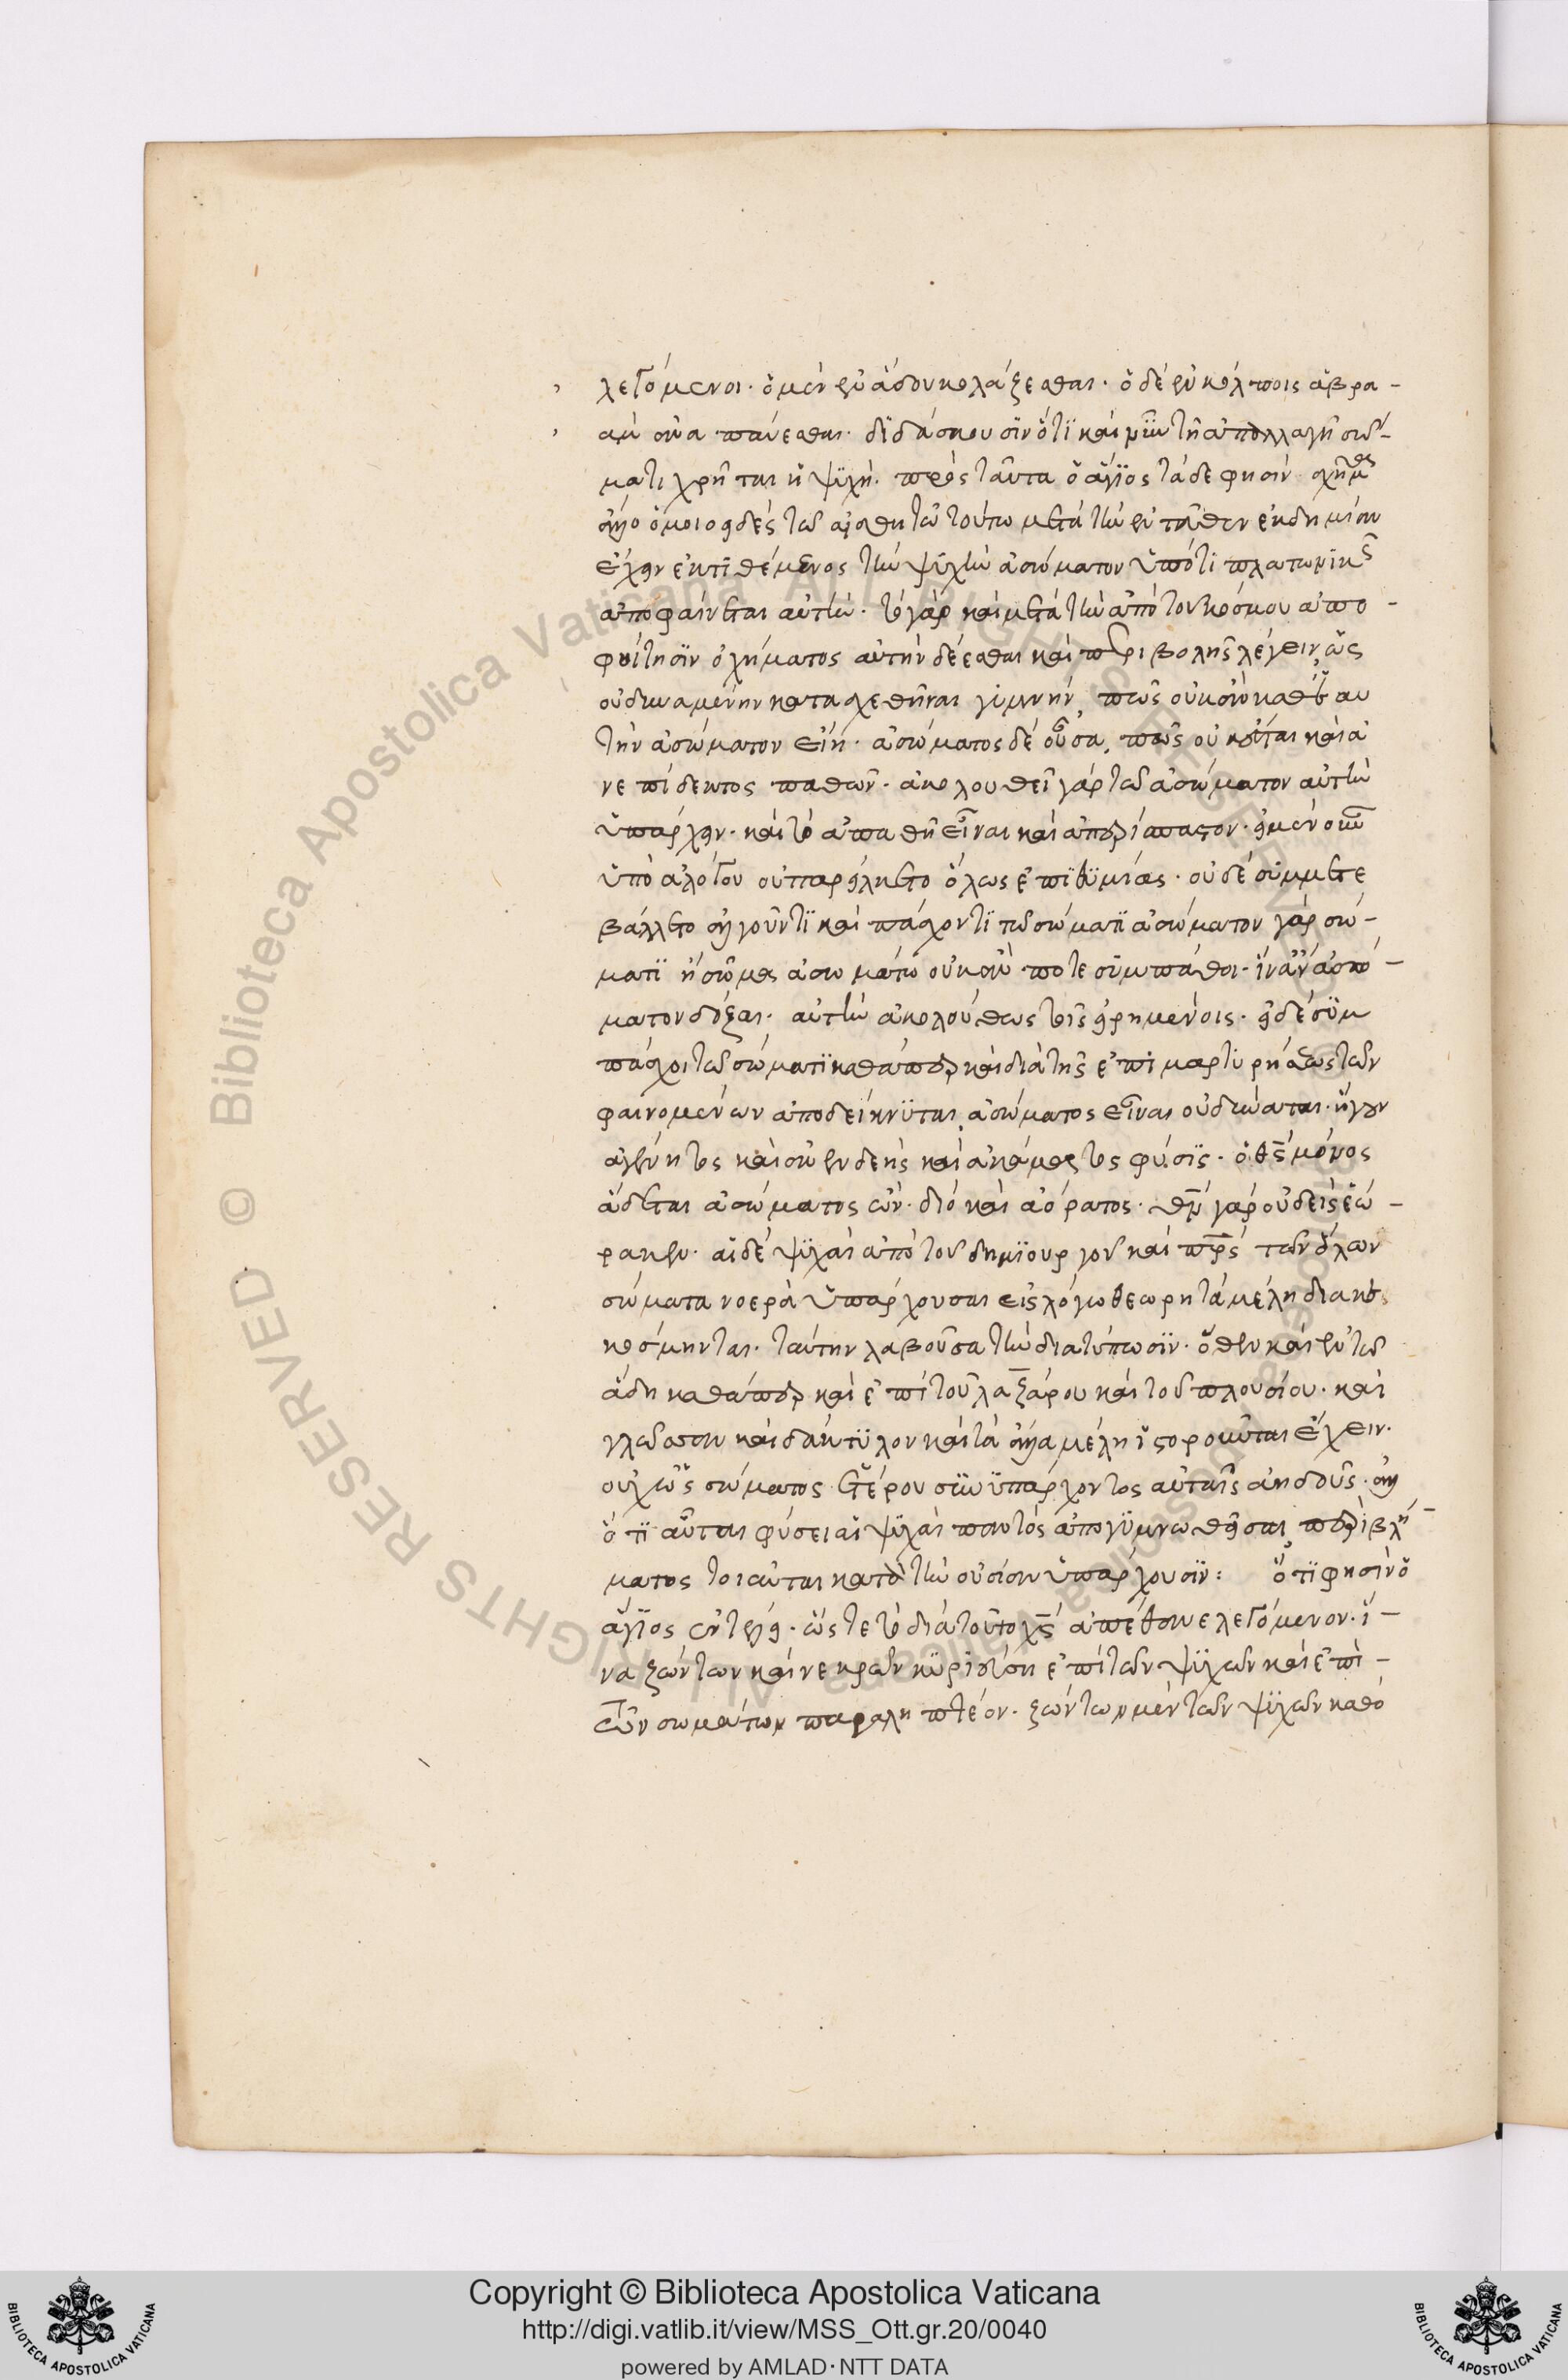 λεγόμενοι· ὁ μὲν ἐν ἅδου κολάζεσθαι· ὁ δὲ ἐν κόλποις ἀβρα-
ὰμ ἀναπαύεσθαι· διδάσκουσιν ὅτι καὶ νῦν τῇ ἀπαλλαγῇ σώ-
ματι χρῆται ἡ ψυχή. πρὸς ταῦτα ὁ ἅγιος τάδε φησίν· σχῆμα
ἄλλο ὁμοιοειδὲς τῶ αἰσθητῶ τούτω μετὰ τὴν ἐντεῦθεν ἐκδημίαν
ἔχειν ἐκτιθέμενος τὴν ψυχὴν ἀσώματον ὑπό τι πλατωνικῶς
ἀποφαίνεται αὐτήν· τὸ γὰρ καὶ μετὰ τὴν ἀπὸ τοῦ κόσμου ἀπο-
φοίτησιν ὀχήματος αὐτὴν δέεσθαι καὶ περιβολῆς λέγειν, ὡς
οὐ δυναμένην κατασχεθῆναι γυμνήν, πῶς οὐκ ἂν καθ' ἑαυ
τὴν ἀσώματον εἴη· ἀσώματος δὲ οὖσα, πῶς οὐκ ἔσται καὶ ἀ
νεπίδεκτος παθῶν· ἀκολουθεῖ γὰρ τῶ ἀσώματον αὐτὴν
ὑπάρχειν· καὶ τὸ ἀπαθῆ εἶναι καὶ ἀπερίσπαστον· εἰ μὲν οὖν
ὑπὸ ἀλόγου οὐ παρείλκετο ὅλως ἐπιθυμίας· οὐδὲ συμμετε
βάλλετο ἀλγοῦντι καὶ πάσχοντι τῶ σώματι ἀσώματον γὰρ σώ-
ματι ἢ σῶμα ἀσωμάτω οὐκ ἄν ποτε συμπάθοι· ἵνα ἂν ἀσώ-
ματον δόξαι· αὐτὴν ἀκολούθως τοῖς εἰρημένοις· εἰ δὲ συμ
πάσχοι τῶ σώματι καθάπερ καὶ διὰ τῆς ἐπιμαρτυρήσεως τῶν
φαινομένων ἀποδείκνυται, ἀσώματος εἶναι οὐ δύναται· ἡ γοῦν
ἀγένητος καὶ ἀνενδεὴς καὶ ἀκάματος φύσις· ὁ θς μόνος
ἄδεται ἀσώματος ὤν· διὸ καὶ ἀόρατος· θν γὰρ οὐδεὶς ἑώ-
ρακεν· αἱ δὲ ψυχαὶ ἀπὸ τοῦ δημιουργοῦ καὶ πρς τῶν ὅλων
σώματα νοερὰ ὑπάρχουσαι εἰς λόγω θεωρητὰ μέλη διακε
κόσμηνται· ταύτην λαβοῦσα τὴν διατύπωσιν· ὅθεν καὶ ἐν τῶ
ἅδη καθάπερ καὶ ἐπὶ τοῦ λαζάρου καὶ τοῦ πλουσίου· καὶ
γλῶσσαν καὶ δάκτυλον καὶ τὰ ἄλλα μέλη ἱστοροῦνται ἔχειν·
οὐχ ὡς σώματος ἑτέρου συνυπάρχοντος αὐταῖς ἀηδοῦς· ἀλλ
ὅτι αὗται φύσει αἱ ψυχαὶ παντὸς ἀπογυμνωθεῖσαι, περιβλή-
ματος τοιαῦται κατὰ τὴν οὐσίαν ὑπάρχουσιν: ὅτι φησὶν ὁ
ἅγιος ἐν τέλει· ὥστε τὸ διὰ τοῦτο χς ἀπέθανε λεγόμενον· ἵ-
να ζώντων καὶ νεκρῶν κυριεύση ἐπὶ τῶν ψυχῶν καὶ ἐπὶ-
τῶν σωμάτων παραληπτέον· ζώντων μὲν τῶν ψυχῶν καθὸ
Copyright © Biblioteca Apostolica Vaticana
http://digi.vatlib.it/view/MSS_Ott.gr.20/0040
powered by AMLAD·NTT DATA